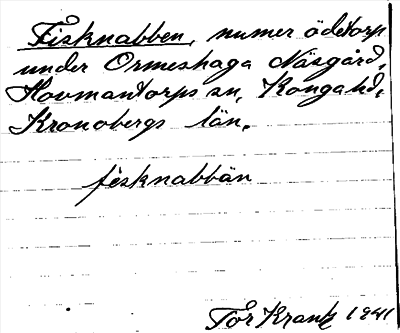 Fisknabben, numer ödetorp
under Ormeshaga Näsgård,
Hovmantorps sn, Konga hd,
Kronobergs län.
fisknabbän
Tor Krantz 1941